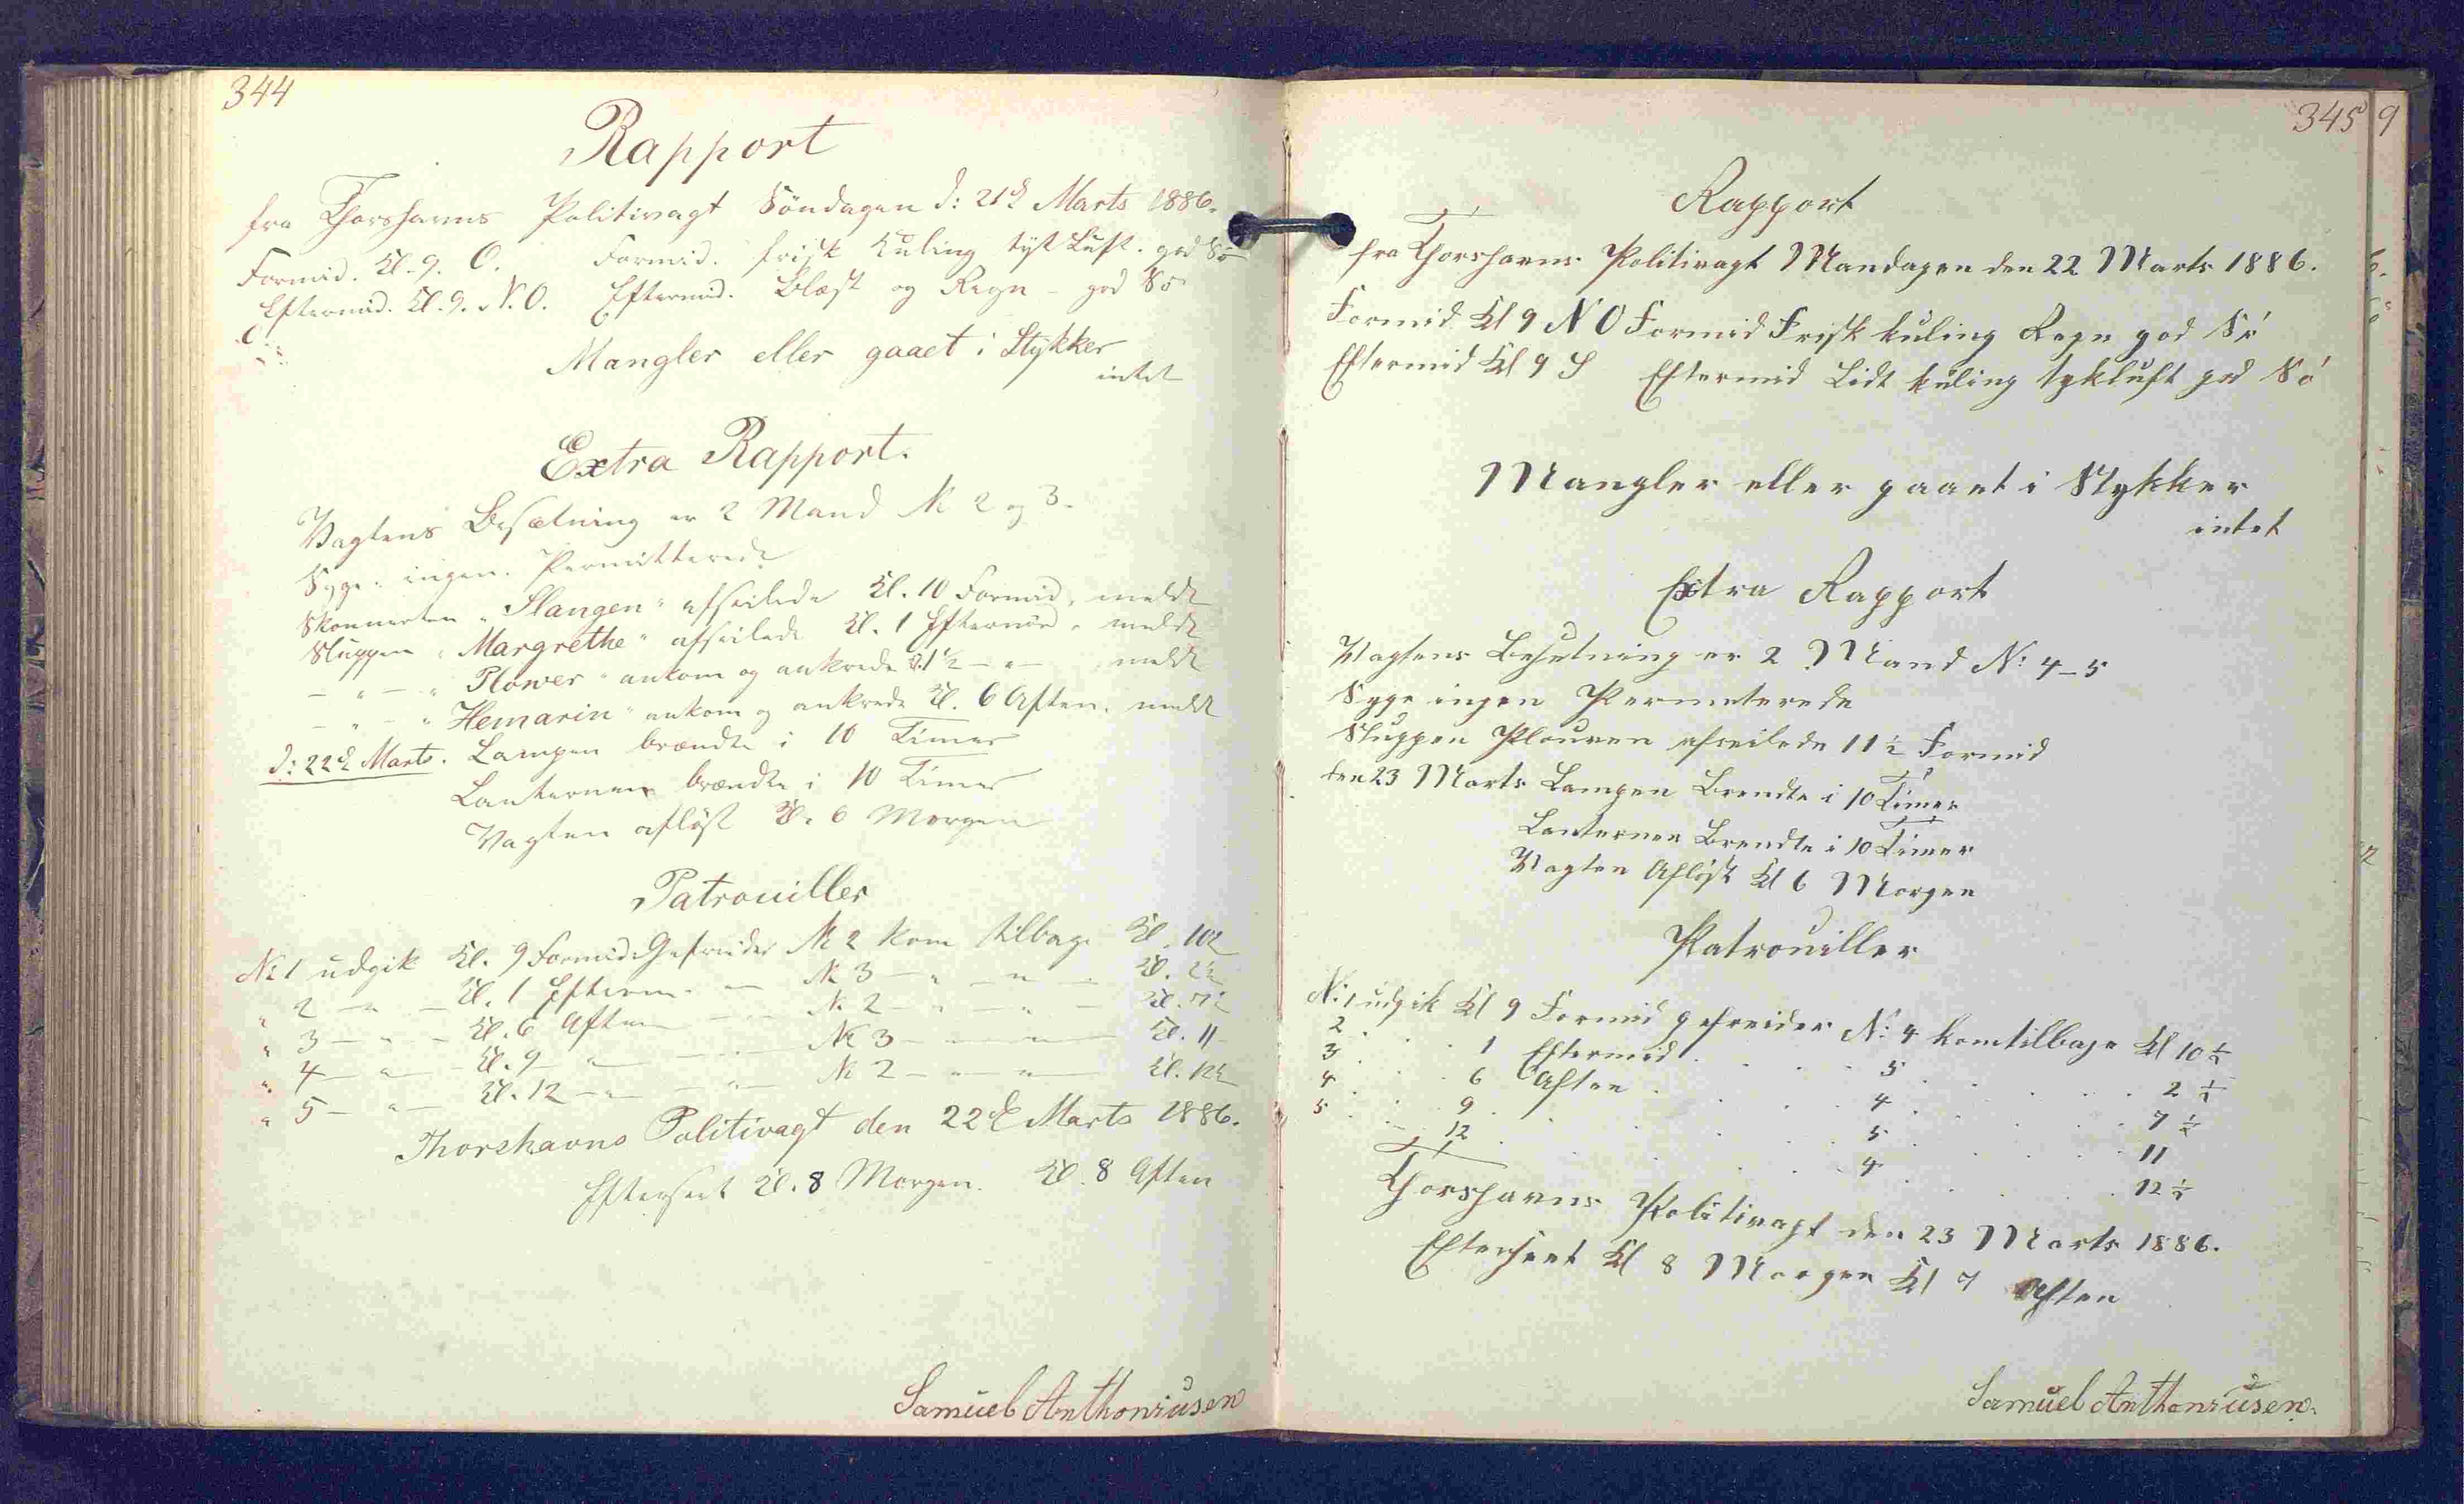 344
Rapport
fra Thorshavns Politivagt Söndagen d: 21de Marts 1886.
Formid. Kl. 9. O. Formid. frisk Kuling tyk Luft. god Sö
Eftermid. Kl. 9. N.O. Eftermid. Blæst og Regn - god Sö
Mangler eller gaaet i Stykker
intet
Extra Rapport.
Vagtens Besætning er 2 Mand № 2 og 3.
Syge: ingen. Permitterede
Skonnerten "Slangen" afseilede Kl. 10 Formid. meldt
Sluppen "Margrethe" afseilede Kl. 1 Eftermid. meldt
- " - " Plower" ankom og ankrede Kl. 1½ - " - meldt
- " - " Hemarin" ankom og ankrede Kl. 6 Aften. meldt
d: 22de Marts. Lampen brændte i 10 Timer
Lanternen brændte i 10 Timer
Vagten aflöst Kl. 6 Morgen
Patrouiller
№ 1 udgik Kl. 9 Formid. Gefreider № 2 kom tilbage Kl. 10½
" 2 - " - Kl. 1 Efterm. - " - № 3 - " - " - Kl. 2½
" 3 - " - Kl. 6 Aften - " - № 2 - " - " - Kl. 7½
" 4 - " - Kl. 9 - " - - " - № 3 - " - " - Kl. 11
" 5 - " - Kl. 12 - " - - " - № 2 - " - " - Kl. 12½
Thorshavns Politivagt den 22de Marts 1886.
Efterseet Kl. 8 Morgen. Kl. 8 Aften
Samuel Anthoniusen
345
9
Rapport
fra Thorshavns Politivagt Mandagen den 22 Marts 1886.
Formid Kl 9 N O Formid Frisk kuling Regn god Sö
Eftermid Kl 9 S Eftermid Lidt kuling tykluft god Sö
Mangler eller gaaet i Stykker
intet
Extra Rapport
Vagtens Besetning er 2 Mand N: 4-5
Syge ingen Permeterede
Sluppen Plouren afseilede 11½ Formid
den 23 Marts Lampen Brendte i 10 Timer
Lanternen Brendte i 10 Timer
Vagten Aflöst Kl 6 Morgen
Patrouiller
N: 1 udgik Kl 9 Formid gefreider N: 4 komtilbage Kl 10½
2 . . . 1 Eftermid . . . 5 . . . 2½
3 . . . 6 Aften . . . 4 . . . 7½
4 . . . 9 . . . 5 . . . 11
5 . . . 12 . . . 4 . . . 12½
Thorshavns Politivagt den 23 Marts 1886.
Efterseet Kl 8 Morgen Kl 7 Aften
Samuel Anthoniusen.